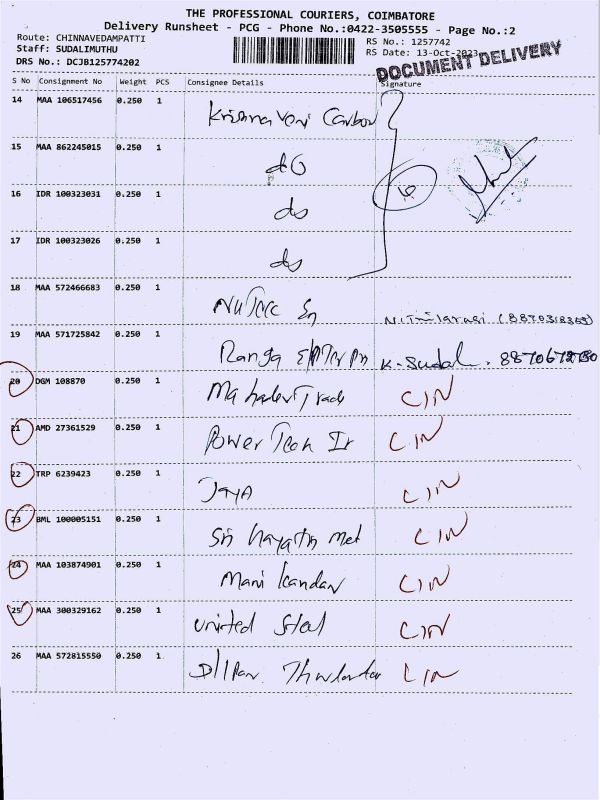 THE PROFESSIONAL COURIERS, COIMBATORE
Delivery Runsheet - PCG - Phone No.:0422-3505555 - Page No.:2
Route: CHINNAVEDAMPATTI
Staff: SUDALIMUTHU
DRS No.: DCJB125774202
RS No.: 1257742
RS Date: 13-Oct-2023
DOCUMENT DELIVERY
S No Consignment No Weight PCS Consignee Details Signature
14 MAA 106517456 0.250 1 Krishnaveni Carbon
15 MAA 862245015 0.250 1 do
16 IDR 100323031 0.250 1 do
17 IDR 100323026 0.250 1 do
18 MAA 572466683 0.250 1
19 MAA 571725842 0.250 1 Ranga K. Sudal.
20 DGM 108870 0.250 1 CIN
21 AMD 27361529 0.250 1 Power Tech CIN
22 TRP 6239423 0.250 1 Jaya CIN
23 BML 100005151 0.250 1 Sri met CIN
24 MAA 103874901 0.250 1 Mani kandan CIN
25 MAA 300329162 0.250 1 United Steel CIN
26 MAA 572815550 0.250 1 CIN